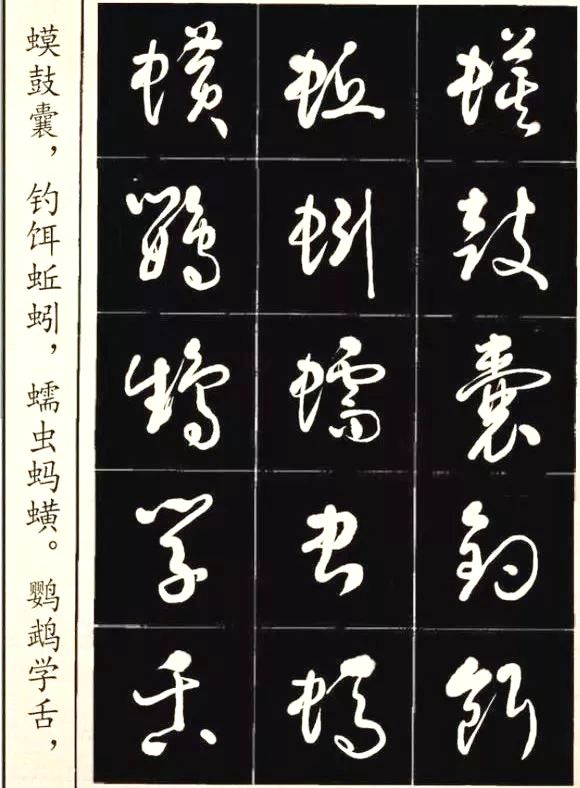 蟆鼓囊釣餌
蚯蚓蠕虫螞
蟥鸚鵡学舌
蟆鼓囊，钓饵蚯蚓，蠕虫蚂蟥。鹦鹉学舌，